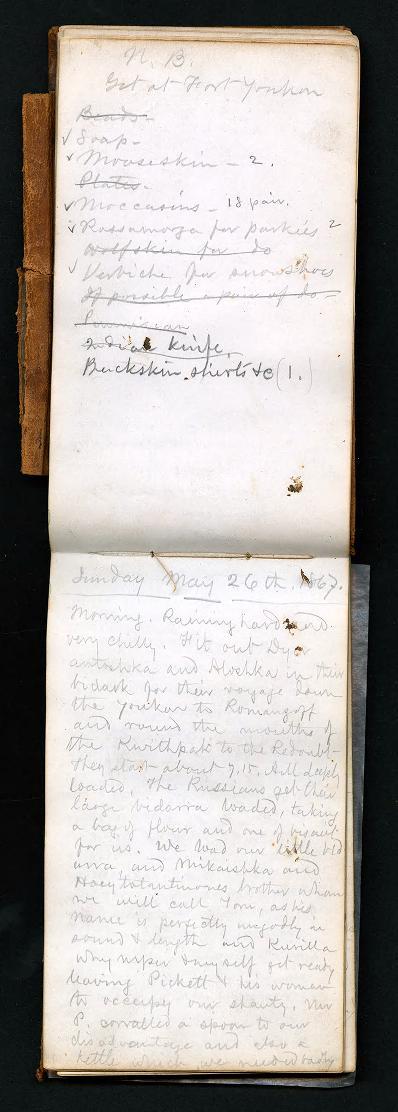 N. B.
Get at Fort Youkon
Beads-
✓ Soap-
✓ Mooseskin - 2.
Plates.
✓ Moccasins - 18 pair.
✓ Rossamorga for parkies 2
Wolfskin for do
✓ Verbiche for snowshoes
If possible a pair of do-
Pemmican
Indian knife.
Buckskin shirts &c (1.)
Sunday May 26th. 1867.
Morning. Raining hard and
very chilly. Fit out Dyer
antoshka and Aloshka in their
bidark for their voyage down
the Youkon to Romangoff
and round the mouths of
the Kwithpak to the Redoubt-
They start about 7,15. All deeply
loaded, The Russians get their
large bidarra loaded, taking
a bag of flour and one of
for us. We load our little bid
arra, and Mikaishka and
brother whom
we will call Tom, as his
name is perfectly ungodly in
sound & length and Kurilla
Whymper & myself get ready
leaving Pickett & his woman
to occupy our shanty. Mr
P. corralled a spoon to our
disadvantage and also a
kettle which we needed badly